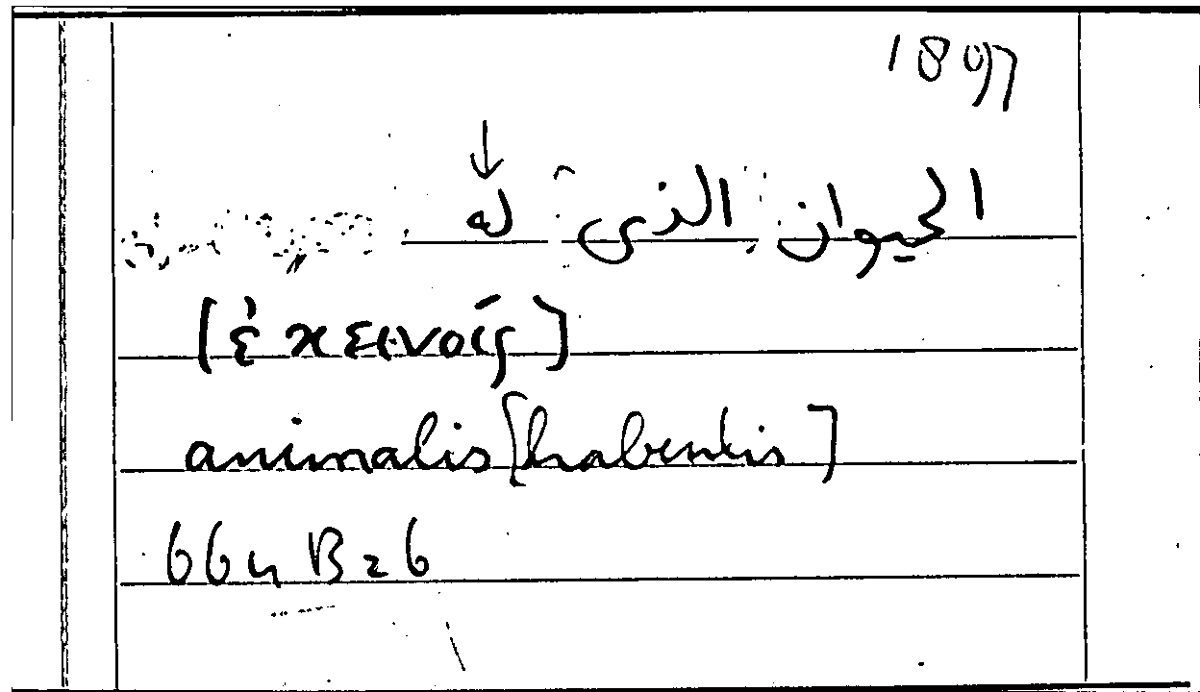 1897
↓
الحيوان الذى له
[ἐκεινοῖς]
animalis [habentis]
664 B 26